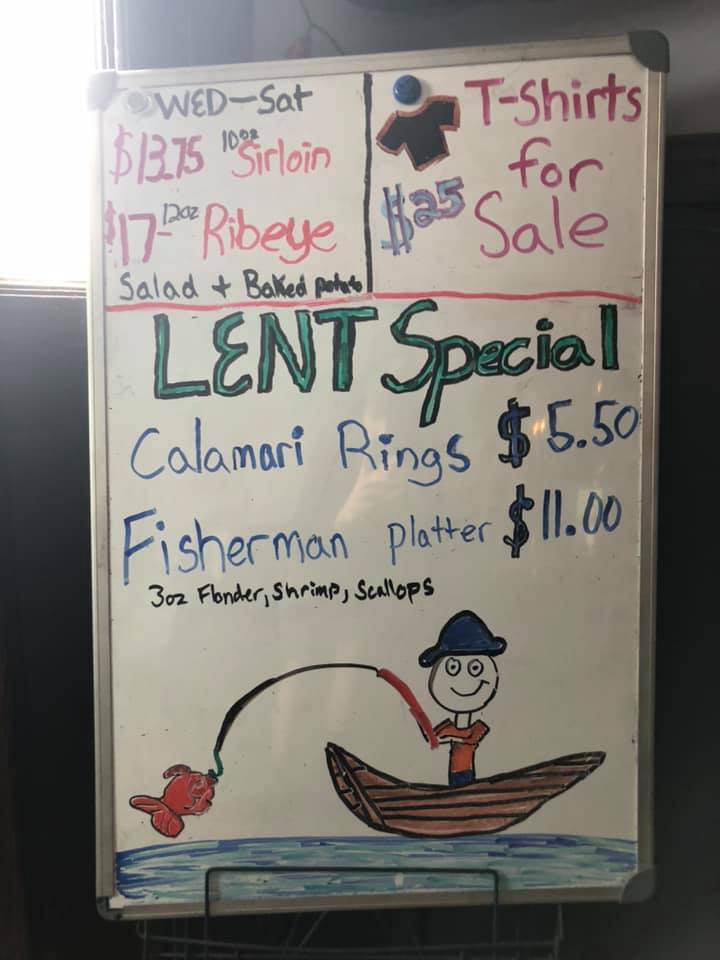 WED-Sat
$13.75 10oz Sirloin
$17- 12oz Ribeye
Salad + Baked potato
T-Shirts
for
$25 Sale
LENT Special
Calamari Rings $5.50
Fisherman platter $11.00
3oz Flonder, Shrimp, Scallops